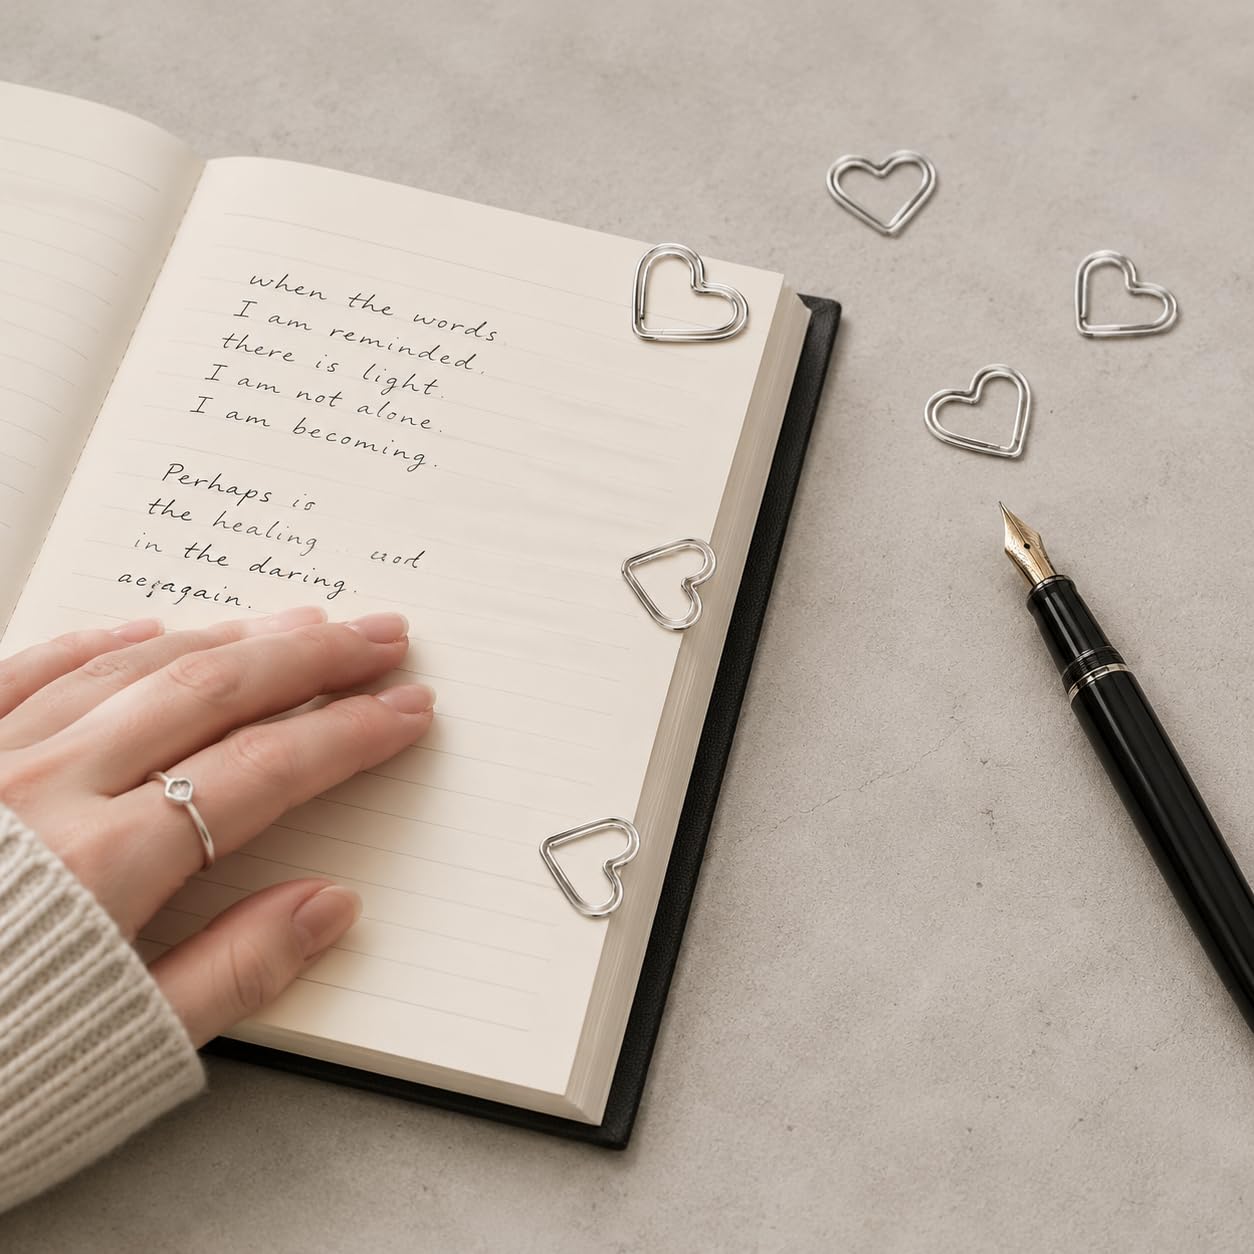 when the words
I am reminded.
there is light.
I am not alone.
I am becoming.
Perhaps is
the healing
in the daring.
again.